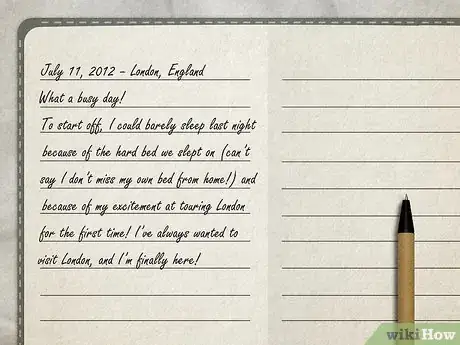 July 11, 2012 – London, England
What a busy day!
To start off, I could barely sleep last night
because of the hard bed we slept on (can't
say I don't miss my own bed from home!) and
because of my excitement at touring London
for the first time! I've always wanted to
visit London, and I'm finally here!
wikiHow